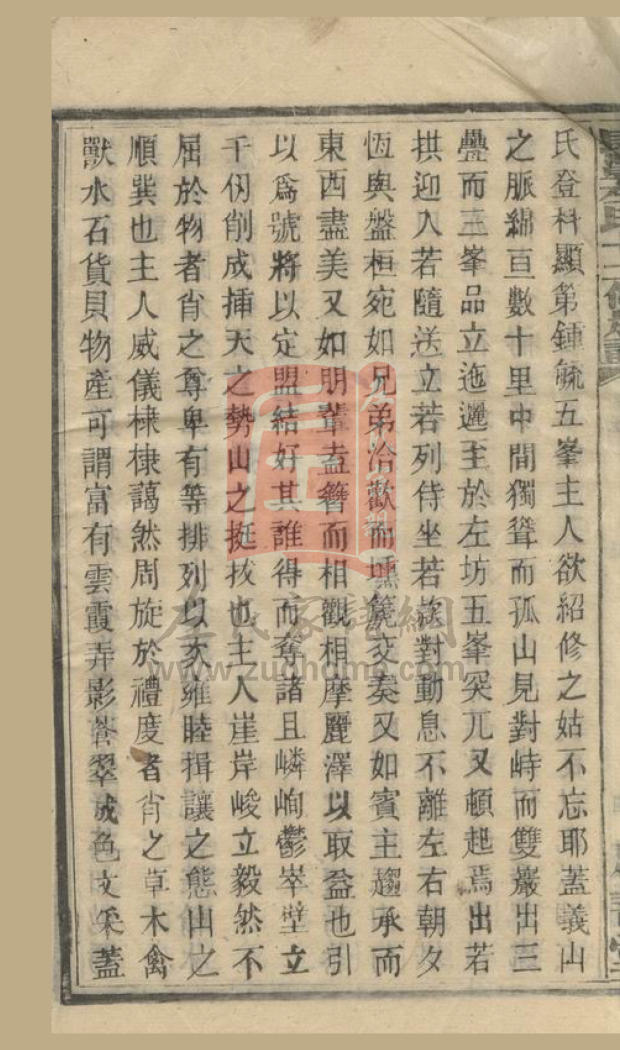 氏登科顯第鍾毓五峯主人欲紹修之姑不忘耶蓋義山
之脈綿亘數十里中間獨聳而孤山見對峙而雙巖出三
疊而三峯品立迤邐主於左坊五峯突兀又頓起焉出若
拱迎入若隨送立若列侍坐若欵對動息不離左右朝夕
恆與盤桓宛如兄弟洽歡而壎篪交奏又如賓主趨承而
東西盡美又如朋輩盍簪而相觀相摩麗澤以取益也引
以爲號將以定盟結好其誰得而奪諸且嶙峋鬱崒壁立
千仞削成揷天之勢山之挺拔也主人崖岸峻立毅然不
屈於物者肖之尊卑有等排列以亥雍睦揖讓之態山之
順巽也主人威儀棣棣藹然周旋於禮度者肖之草木禽
獸水石貨貝物產可謂富有雲霞弄影蒼翠成色文采蓋
左氏家譜網
www.zuohome.com